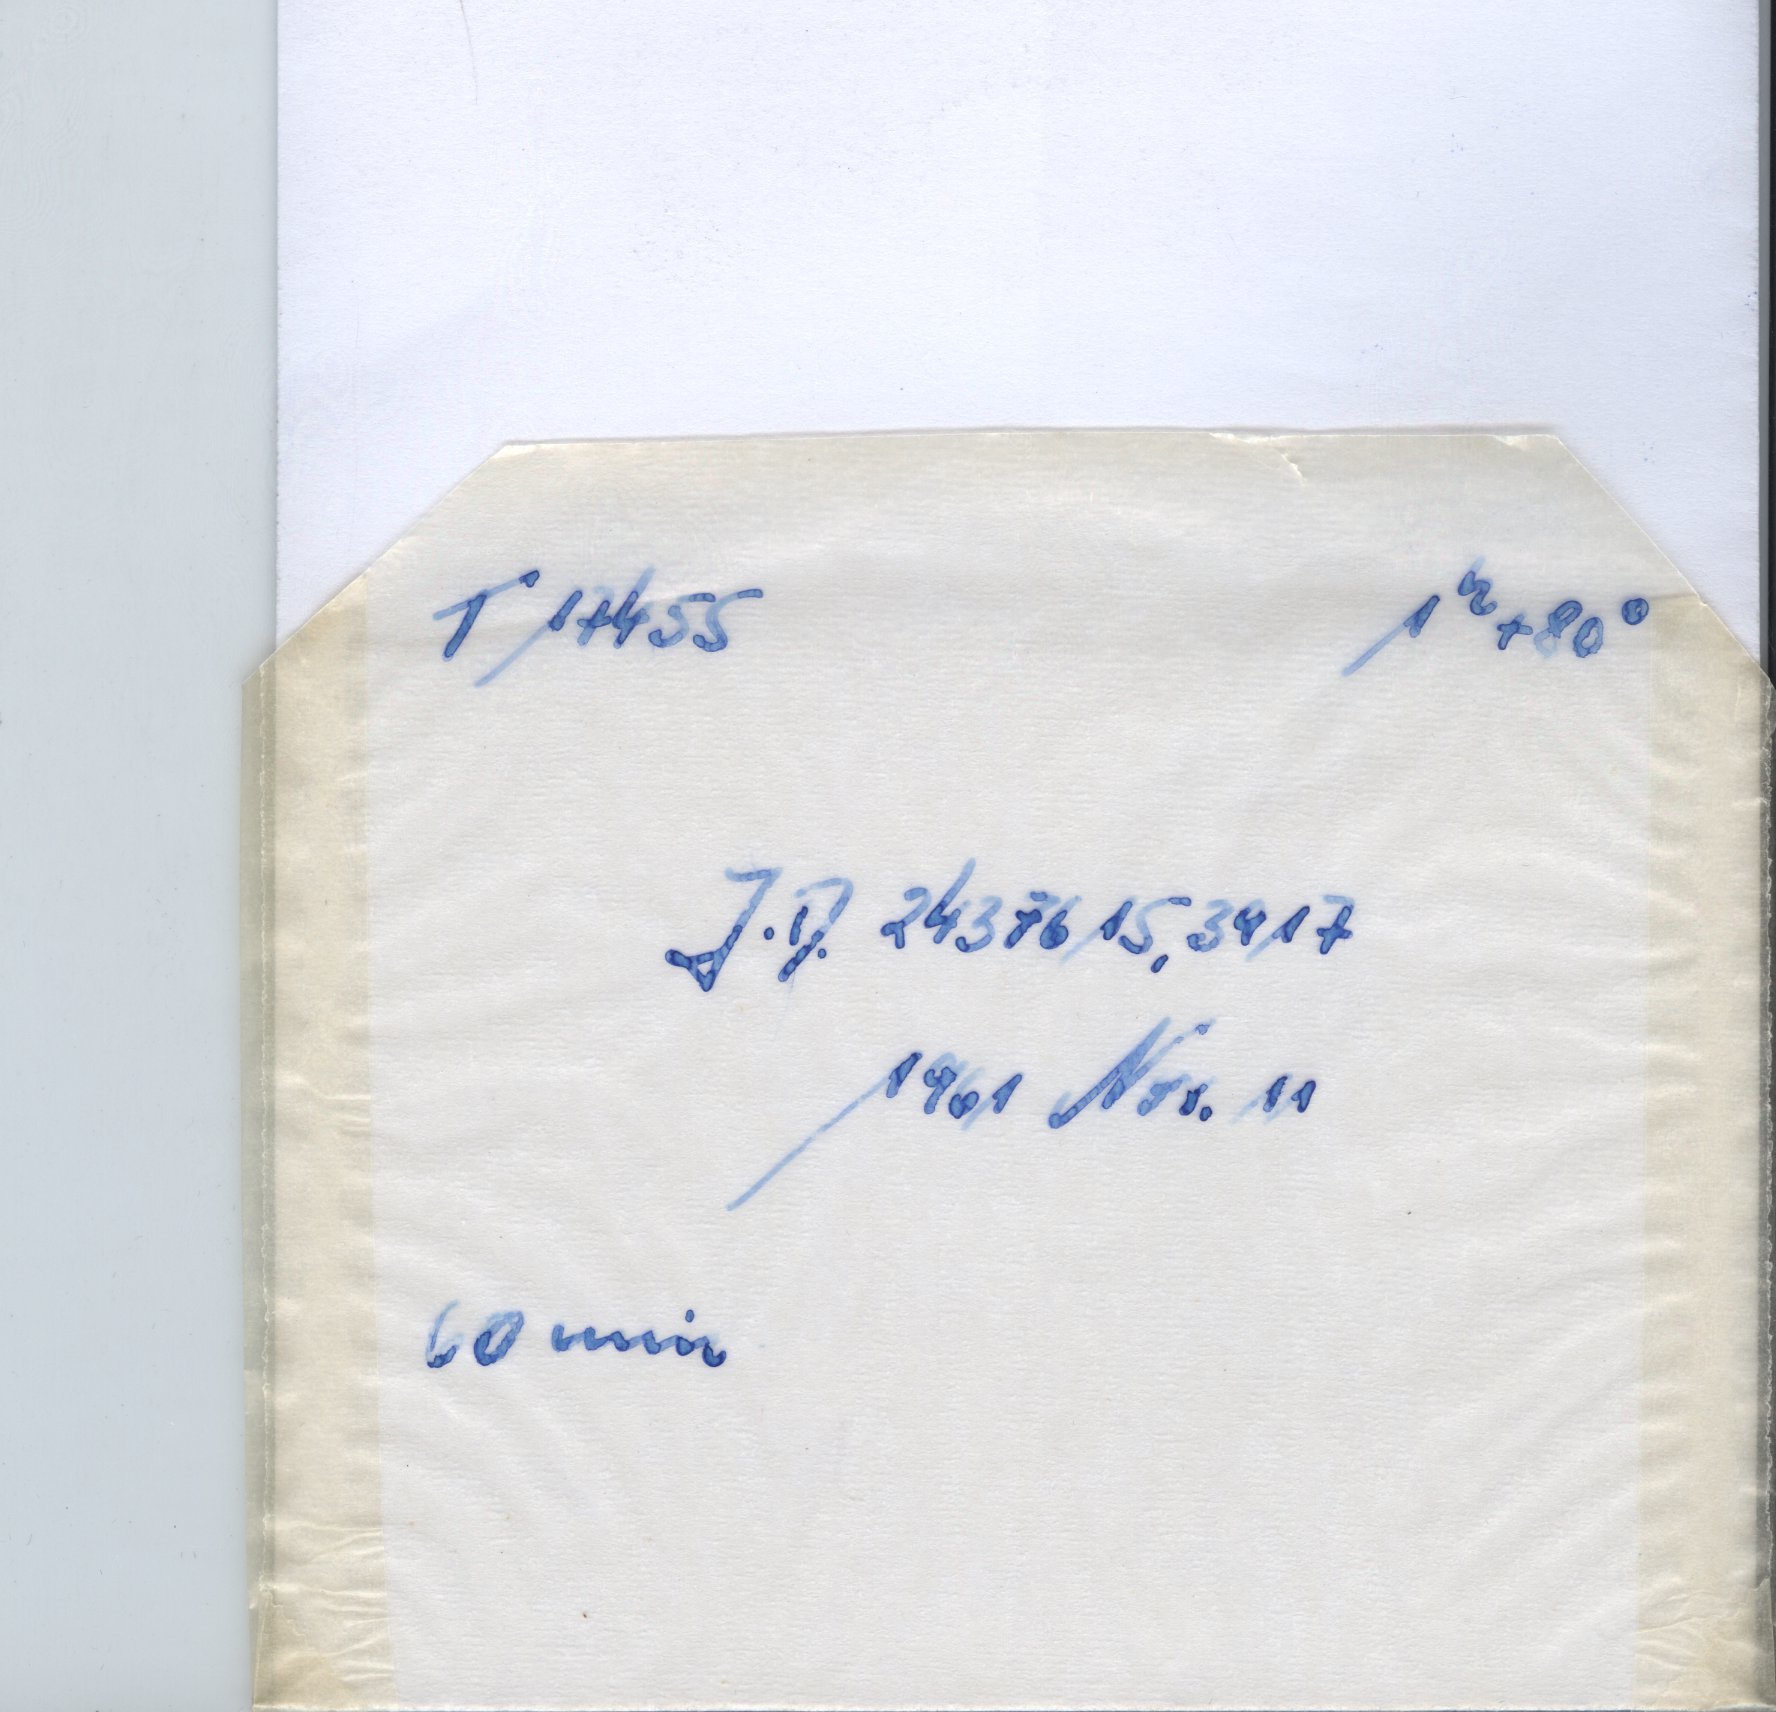 T 17455 1ʰ +80°
J.D. 2437615,3917
1961 Nov. 11
60 min